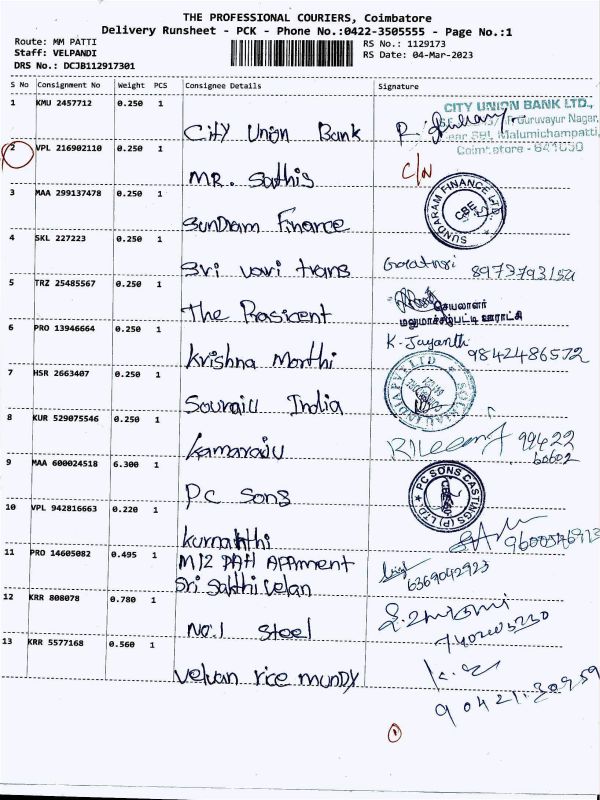 THE PROFESSIONAL COURIERS, Coimbatore
Delivery Runsheet - PCK - Phone No.:0422-3505555 - Page No.:1
Route: MM PATTI
RS No.: 1129173
Staff: VELPANDI
RS Date: 04-Mar-2023
DRS No.: DCJB112917301
S No Consignment No Weight PCS Consignee Details Signature
1 KMU 2457712 0.250 1
CITY UNION BANK LTD.,
Guruvayur Nagar,
City Union Bank
Near SBI, Malumichampatti,
Coimbatore - 641050
2 VPL 216902110 0.250 1
MR. Sathis C/N
3 MAA 299137478 0.250 1
Sundram Finance
SUNDARAM FINANCE LTD.
CBE
4 SKL 227223 0.250 1
Sri vari trans
5 TRZ 25485567 0.250 1
The Prasicent
செயலாளர்
மலுமாச்சிபட்டி ஊராட்சி
6 PRO 13946664 0.250 1
K. Jayanth
Krishna Morthi 9842486572
7 HSR 2663407 0.250 1
India
8 KUR 529075546 0.250 1
Kamaraju
99422
60602
9 MAA 600024518 6.300 1
PC Sons
PC SONS CASTINGS (P) LTD.
10 VPL 942816663 0.220 1
11 PRO 14605082 0.495 1
6369042923
Sri Sakthi velan
12 KRR 808078 0.780 1
No.1 Steel
13 KRR 5577168 0.560 1
Velvan rice mundy
1